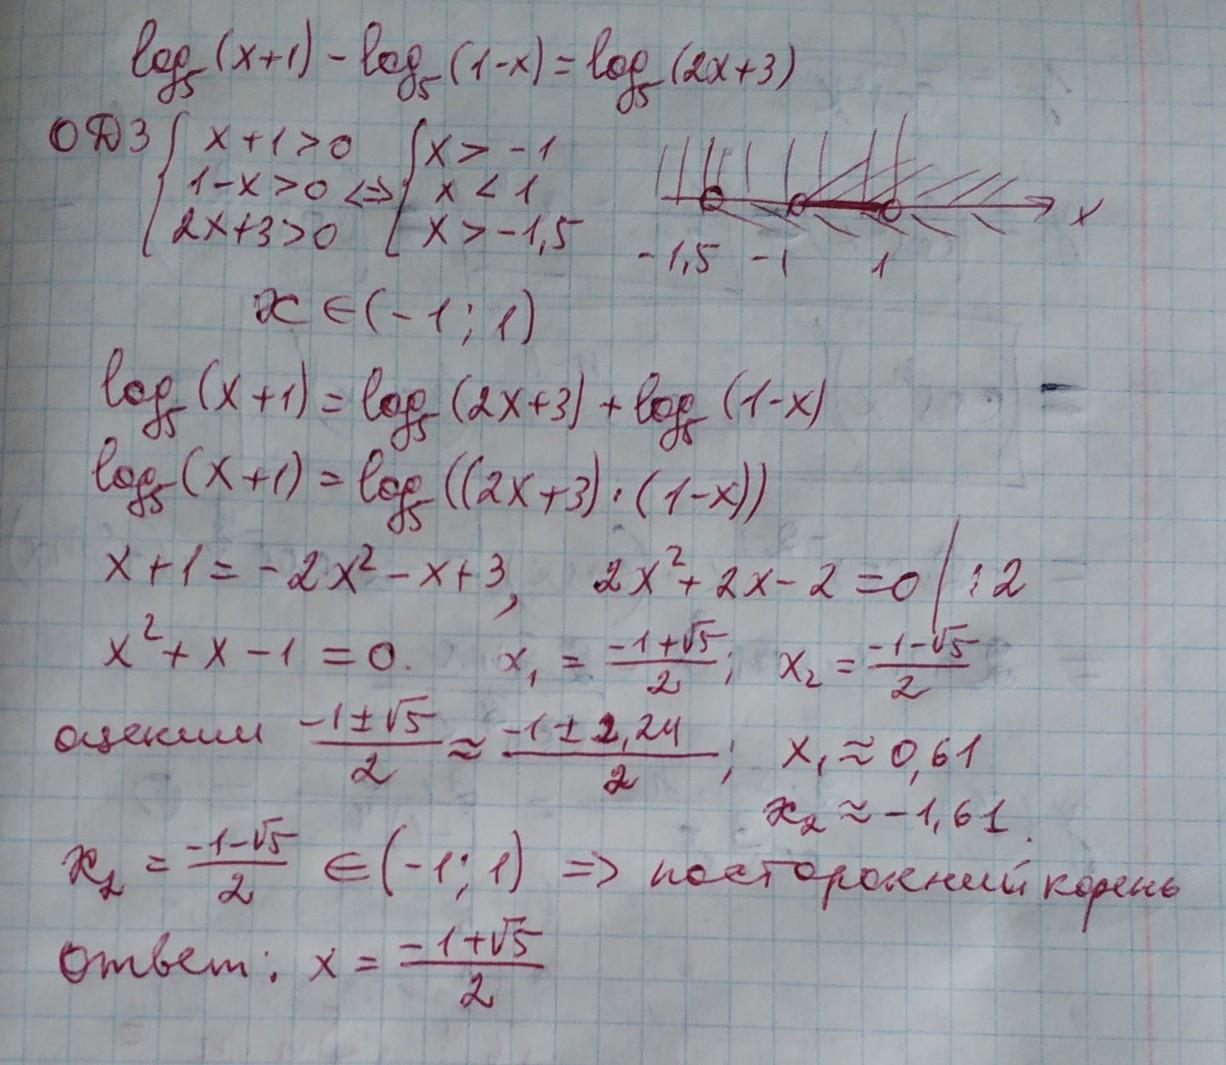 log₅(x+1) - log₅(1-x) = log₅(2x+3)
ОДЗ { x+1>0 { x > -1
1-x>0 <=> x < 1
2x+3>0 x > -1,5
-1,5 -1 1 x
x ∈ (-1; 1)
log₅(x+1) = log₅(2x+3) + log₅(1-x)
log₅(x+1) = log₅((2x+3)·(1-x))
x+1 = -2x² - x+3, 2x² + 2x - 2 = 0 | :2
x² + x - 1 = 0. x₁ = (-1+√5)/2; x₂ = (-1-√5)/2
оценим (-1±√5)/2 ≈ (-1 ± 2,24)/2; x₁ ≈ 0,61
x₂ ≈ -1,61.
x₂ = (-1-√5)/2 ∈ (-1; 1) => посторонний корень
Ответ: x = (-1+√5)/2